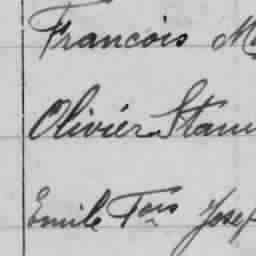 Francois M
Oliviér Stan
Emile Fois Josep